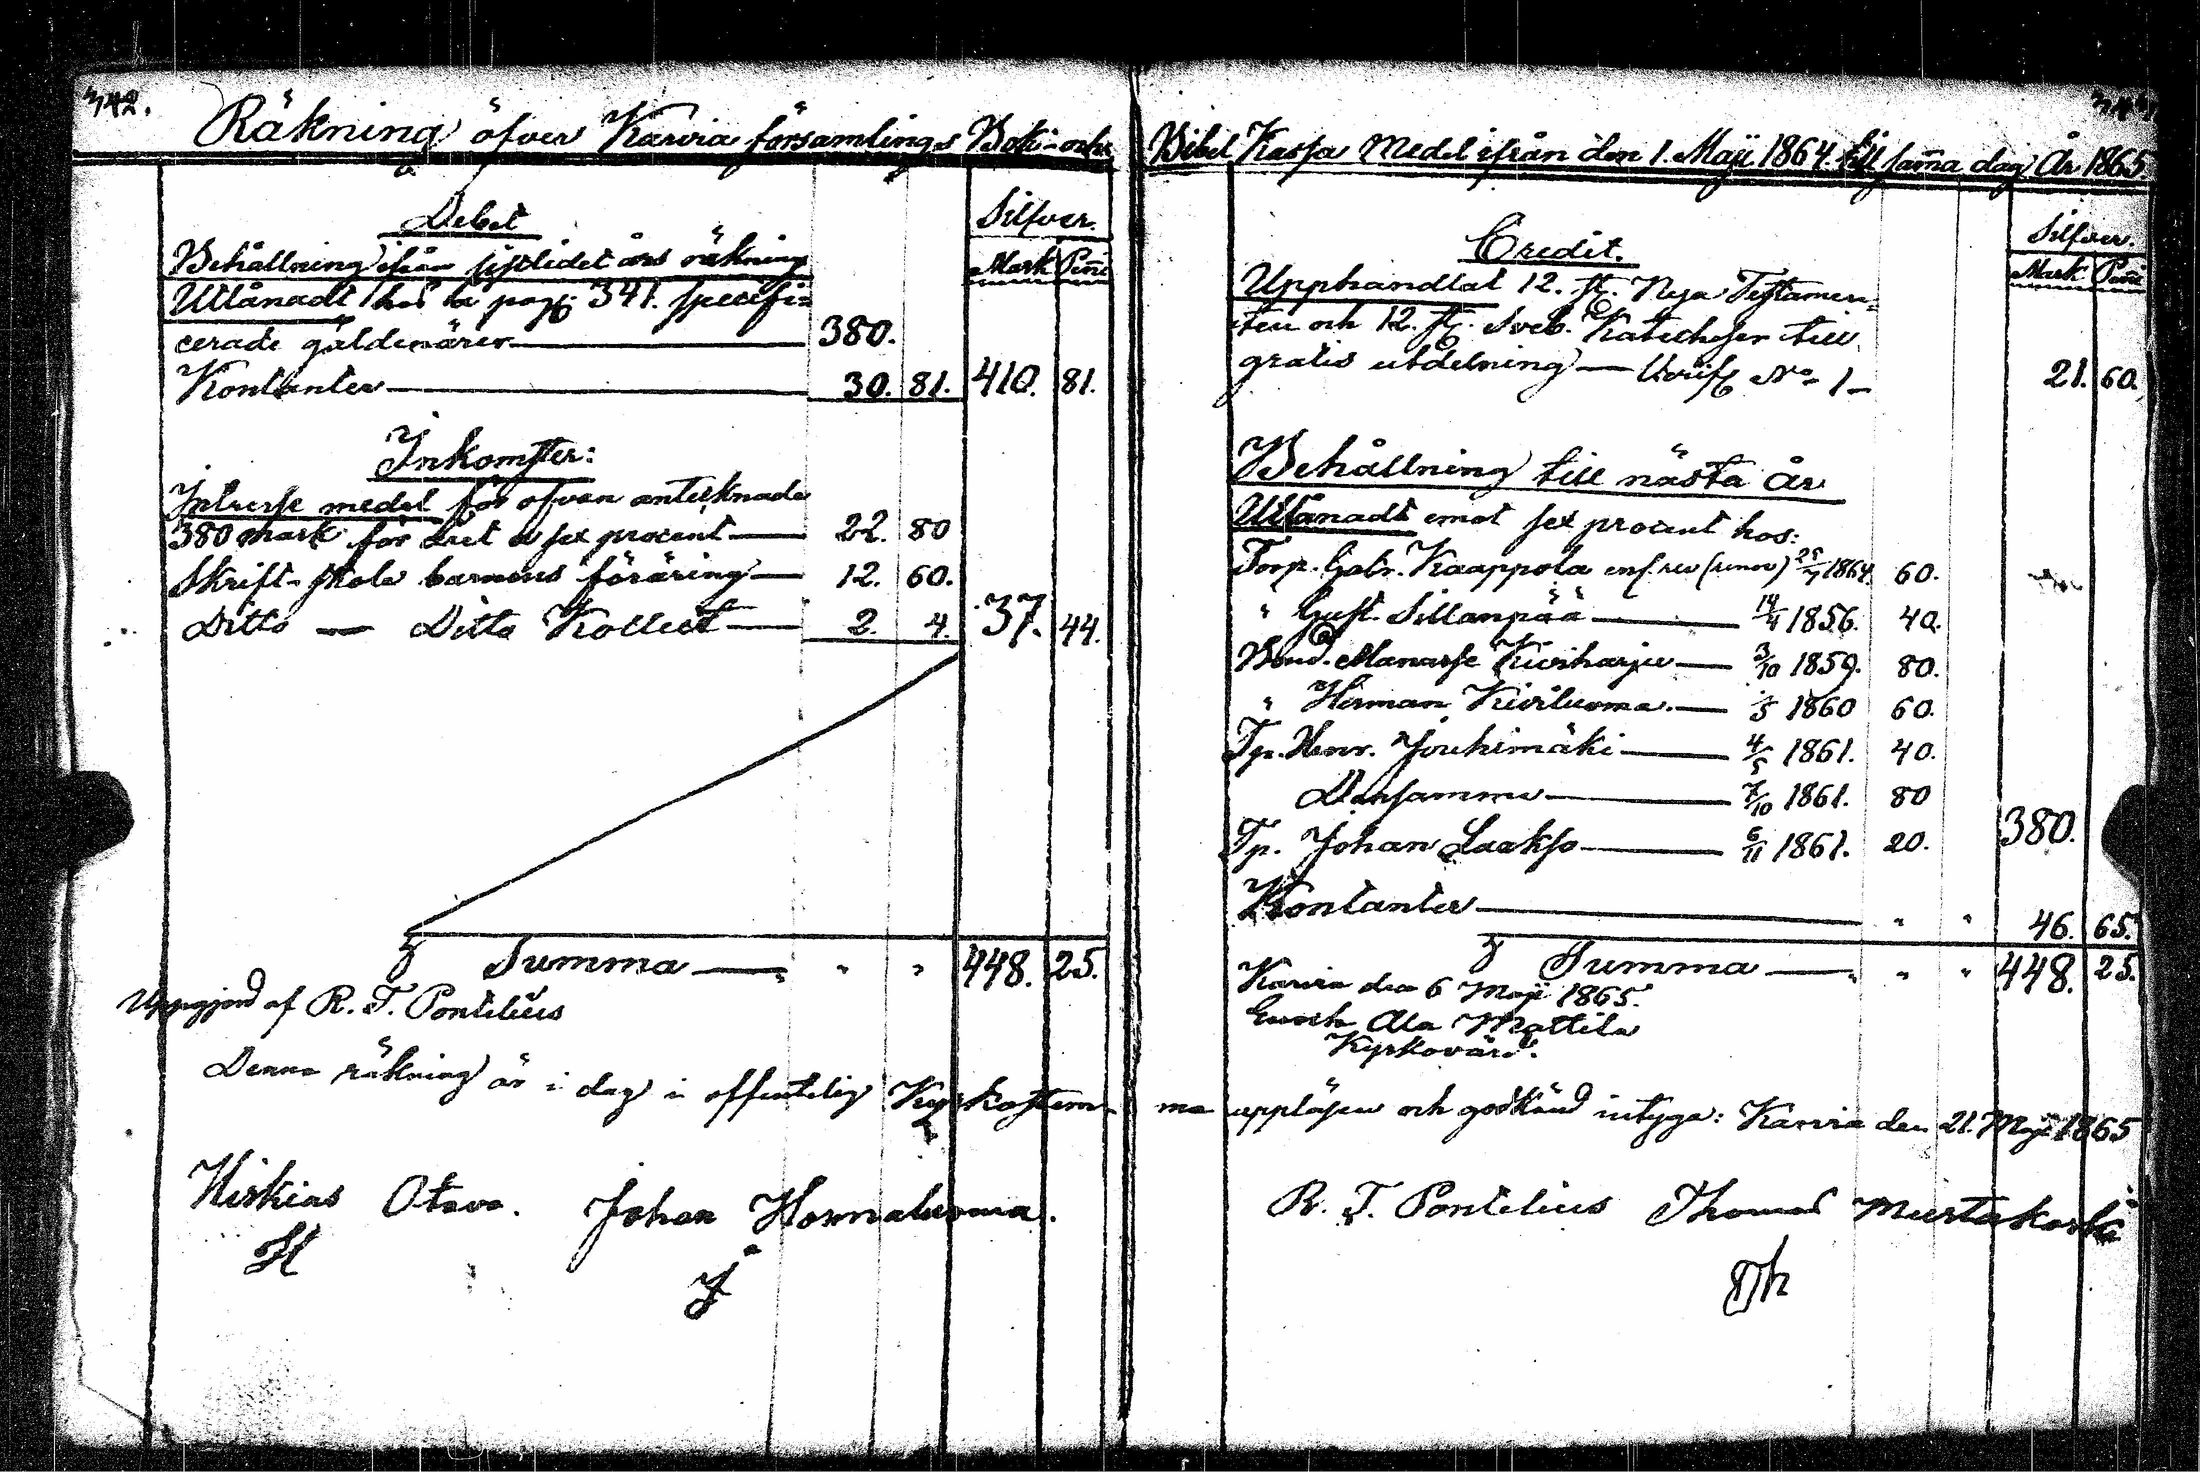 342.
Räkning öfver Karvia församlings Bok- och
Debet
Silfver.
Mark Peñi
Behållning ifrån sistlidet års räkning
Utlånadt hos å pag: 341. specifi=
cerade gäldenärer 380.
Kontanter 30. 81. 410. 81.
Inkomster:
Intresse medel för ofvan antecknade
380 mark för året à sex procent 22. 80
Skrift-skole barnens föräring 12. 60.
Ditto — Ditto Kollect 2. 4. 37. 44.
Summa " " 448. 25.
Uppgjord af R. T. Pontelius
Denna räkning är i dag i offentelig Kyrkostem-
Hiskias Otava. Johan Hormaluoma.
H
J
Bibel Kassa Medel ifrån den 1. Maji 1864. till sam̄a dag År 1865.
Credit.
Silfver.
Mark Peñi
Upphandlat 12. st. Nya Testamen-
ten och 12. st. Sveb. Katecheser till
gratis utdelning — Verif No 1 — 21. 60.
Behållning till nästa år
Utlånadt emot sex procent hos:
Torp. Gabr. Kaappola enl. rev (renov) 1864. 60.
" Gust. Sillanpää 14/4 1856. 40.
Bond. Manasse Kiviharju 3/10 1859. 80.
" Herman Kiviluoma 1/5 1860 60.
Tp. Henr. Jouhimäki 4/5 1861. 40.
Densamme 7/10 1861. 80
Tp. Johan Laakso 6/11 1861. 20. 380.
Kontanter " " 46. 65.
Summa " " 448. 25.
Karvia den 6 Maji 1865.
Enoch Ala Mattila
Kyrkovärd.
ma uppläsen och godkänd intyga: Karvia den 21. Maji 1865
R. T. Pontelius Thomas Mustakoski
Th